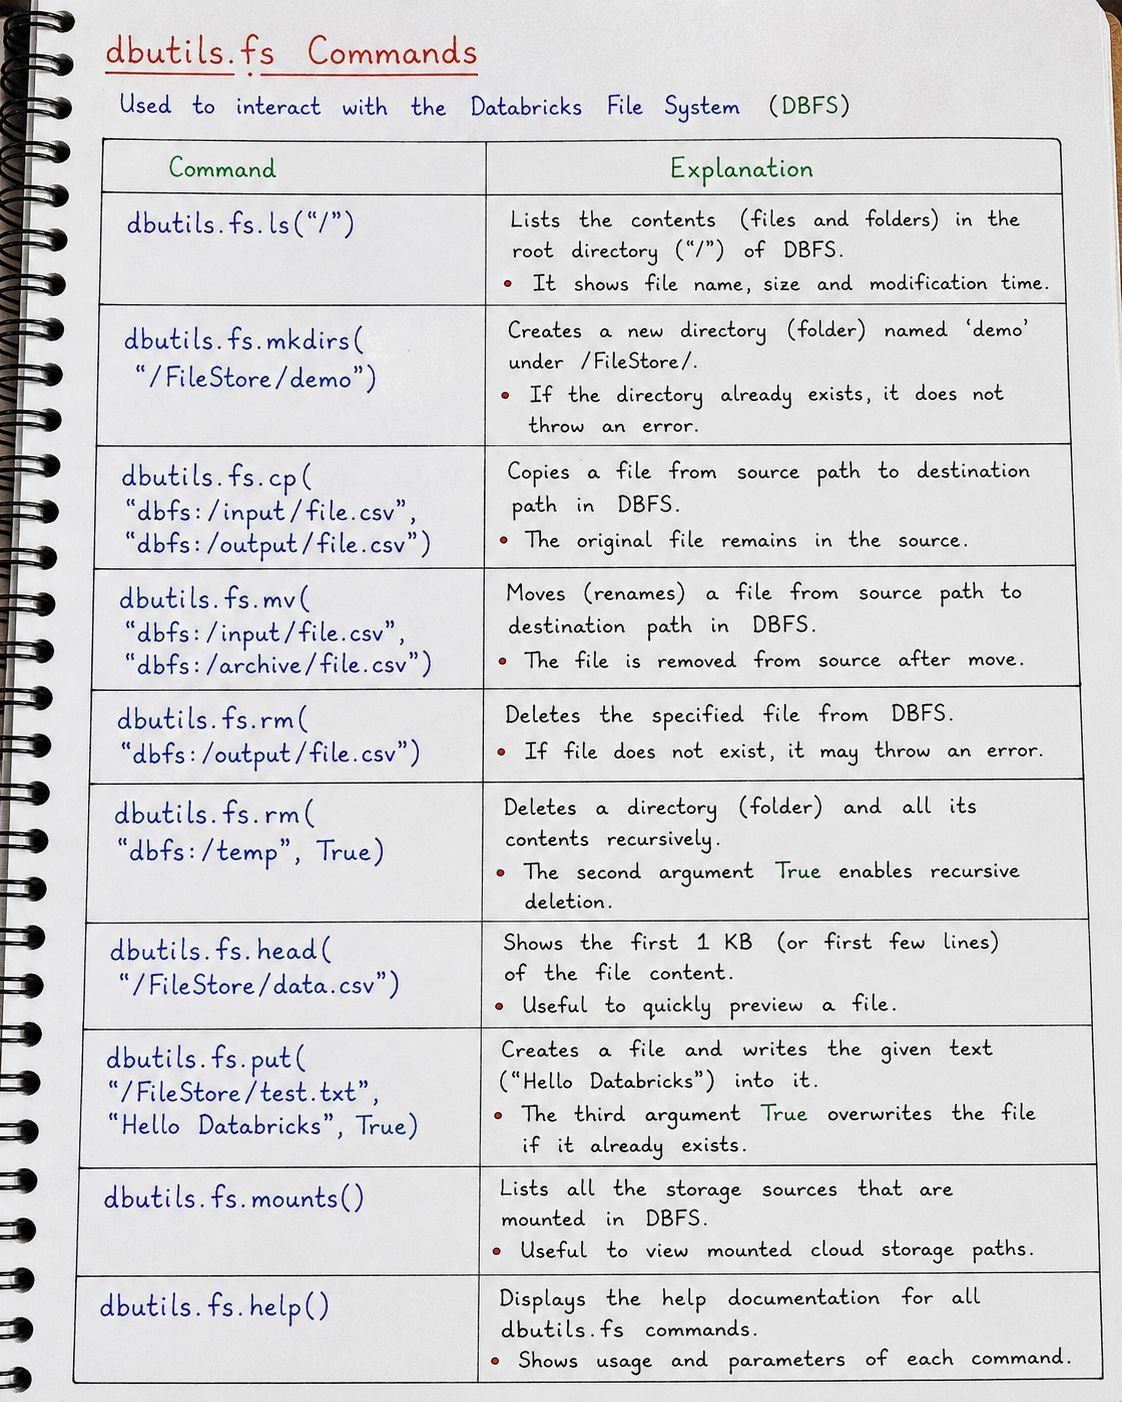 dbutils.fs Commands
Used to interact with the Databricks File System (DBFS)
Command
Explanation
dbutils.fs.ls(“/”)
Lists the contents (files and folders) in the
root directory (“/”) of DBFS.
• It shows file name, size and modification time.
dbutils.fs.mkdirs(
“/FileStore/demo”)
Creates a new directory (folder) named ‘demo’
under /FileStore/.
• If the directory already exists, it does not
throw an error.
dbutils.fs.cp(
“dbfs:/input/file.csv”,
“dbfs:/output/file.csv”)
Copies a file from source path to destination
path in DBFS.
• The original file remains in the source.
dbutils.fs.mv(
“dbfs:/input/file.csv”,
“dbfs:/archive/file.csv”)
Moves (renames) a file from source path to
destination path in DBFS.
• The file is removed from source after move.
dbutils.fs.rm(
“dbfs:/output/file.csv”)
Deletes the specified file from DBFS.
• If file does not exist, it may throw an error.
dbutils.fs.rm(
“dbfs:/temp”, True)
Deletes a directory (folder) and all its
contents recursively.
• The second argument True enables recursive
deletion.
dbutils.fs.head(
“/FileStore/data.csv”)
Shows the first 1 KB (or first few lines)
of the file content.
• Useful to quickly preview a file.
dbutils.fs.put(
“/FileStore/test.txt”,
“Hello Databricks”, True)
Creates a file and writes the given text
(“Hello Databricks”) into it.
• The third argument True overwrites the file
if it already exists.
dbutils.fs.mounts()
Lists all the storage sources that are
mounted in DBFS.
• Useful to view mounted cloud storage paths.
dbutils.fs.help()
Displays the help documentation for all
dbutils.fs commands.
• Shows usage and parameters of each command.